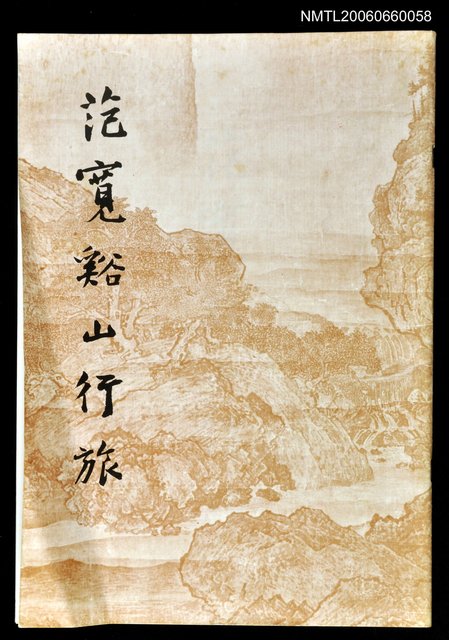 NMTL20060660058
范寬谿山行旅